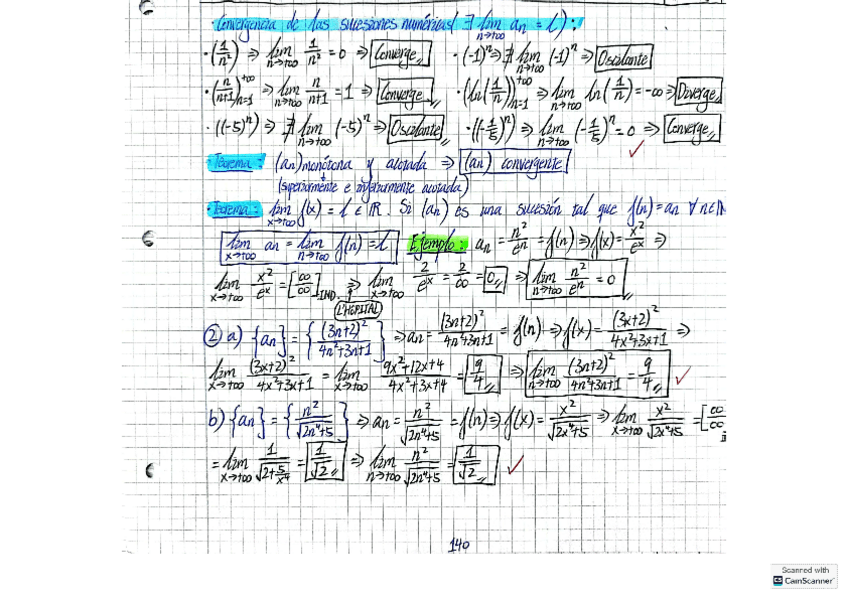 · Convergencia de las sucesiones numéricas (∃ lim n→+∞ an = L):
· (1/n²) ⇒ lim n→+∞ 1/n² = 0 ⇒ Converge // · (-1)ⁿ ⇒ ∄ lim n→+∞ (-1)ⁿ ⇒ Oscilante
· (n/n+1)n=1 +∞ ⇒ lim n→+∞ n/n+1 = 1 ⇒ Converge // · (ln(1/n))n=1 +∞ ⇒ lim n→+∞ ln(1/n) = -∞ ⇒ Diverge //
· ((-5)ⁿ) ⇒ ∄ lim n→+∞ (-5)ⁿ ⇒ Oscilante // · ((-1/5)ⁿ) ⇒ lim n→+∞ (-1/5)ⁿ = 0 ⇒ Converge //
· Teorema: (an) monótona y acotada ⇒ (an) convergente
(superiormente e inferiormente acotada)
· Teorema: lim x→+∞ f(x) = L ∈ ℝ. Si (an) es una sucesión tal que f(n) = an ∀ n ∈ ℕ
lim x→+∞ an = lim n→+∞ f(n) = L. Ejemplo: an = n²/eⁿ = f(n) ⇒ f(x) = x²/eˣ ⇒
lim x→+∞ x²/eˣ = [∞/∞] IND. ⇒ lim x→+∞ 2/eˣ = 2/∞ = 0 // ⇒ lim n→+∞ n²/eⁿ = 0
L'HOPITAL
② a) {an} = {(3n+2)²/4n²+3n+1} ⇒ an = (3n+2)²/4n²+3n+1 = f(n) ⇒ f(x) = (3x+2)²/4x²+3x+1 ⇒
lim x→+∞ (3x+2)²/4x²+3x+1 = lim x→+∞ 9x²+12x+4/4x²+3x+4 = 9/4 // ⇒ lim n→+∞ (3n+2)²/4n²+3n+1 = 9/4 //
b) {an} = {n²/√2n⁴+5} ⇒ an = n²/√2n⁴+5 = f(n) ⇒ f(x) = x²/√2x⁴+5 ⇒ lim x→+∞ x²/√2x⁴+5 = [∞/∞
= lim x→+∞ 1/√2+5/x⁴ = 1/√2 // ⇒ lim n→+∞ n²/√2n⁴+5 = 1/√2 //
140
Scanned with
CS CamScanner